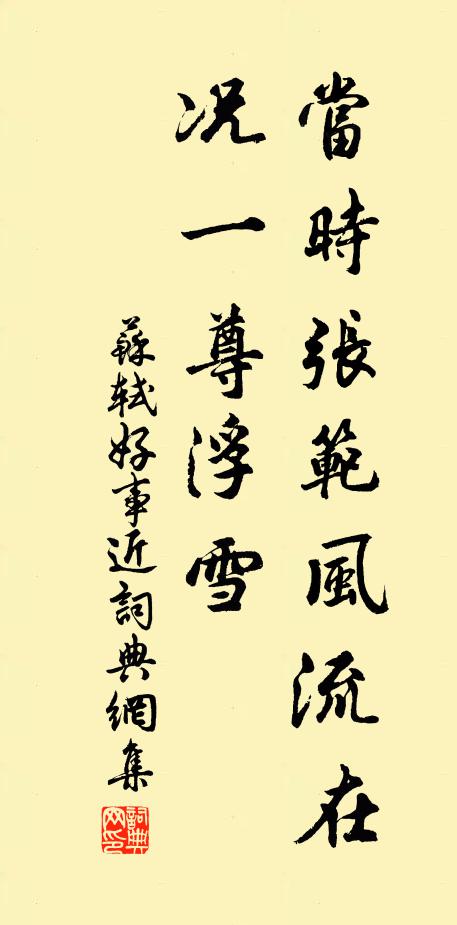 當時張範風流在
况一尊浮雪
蘇軾好事近詞典網集
詞典網印